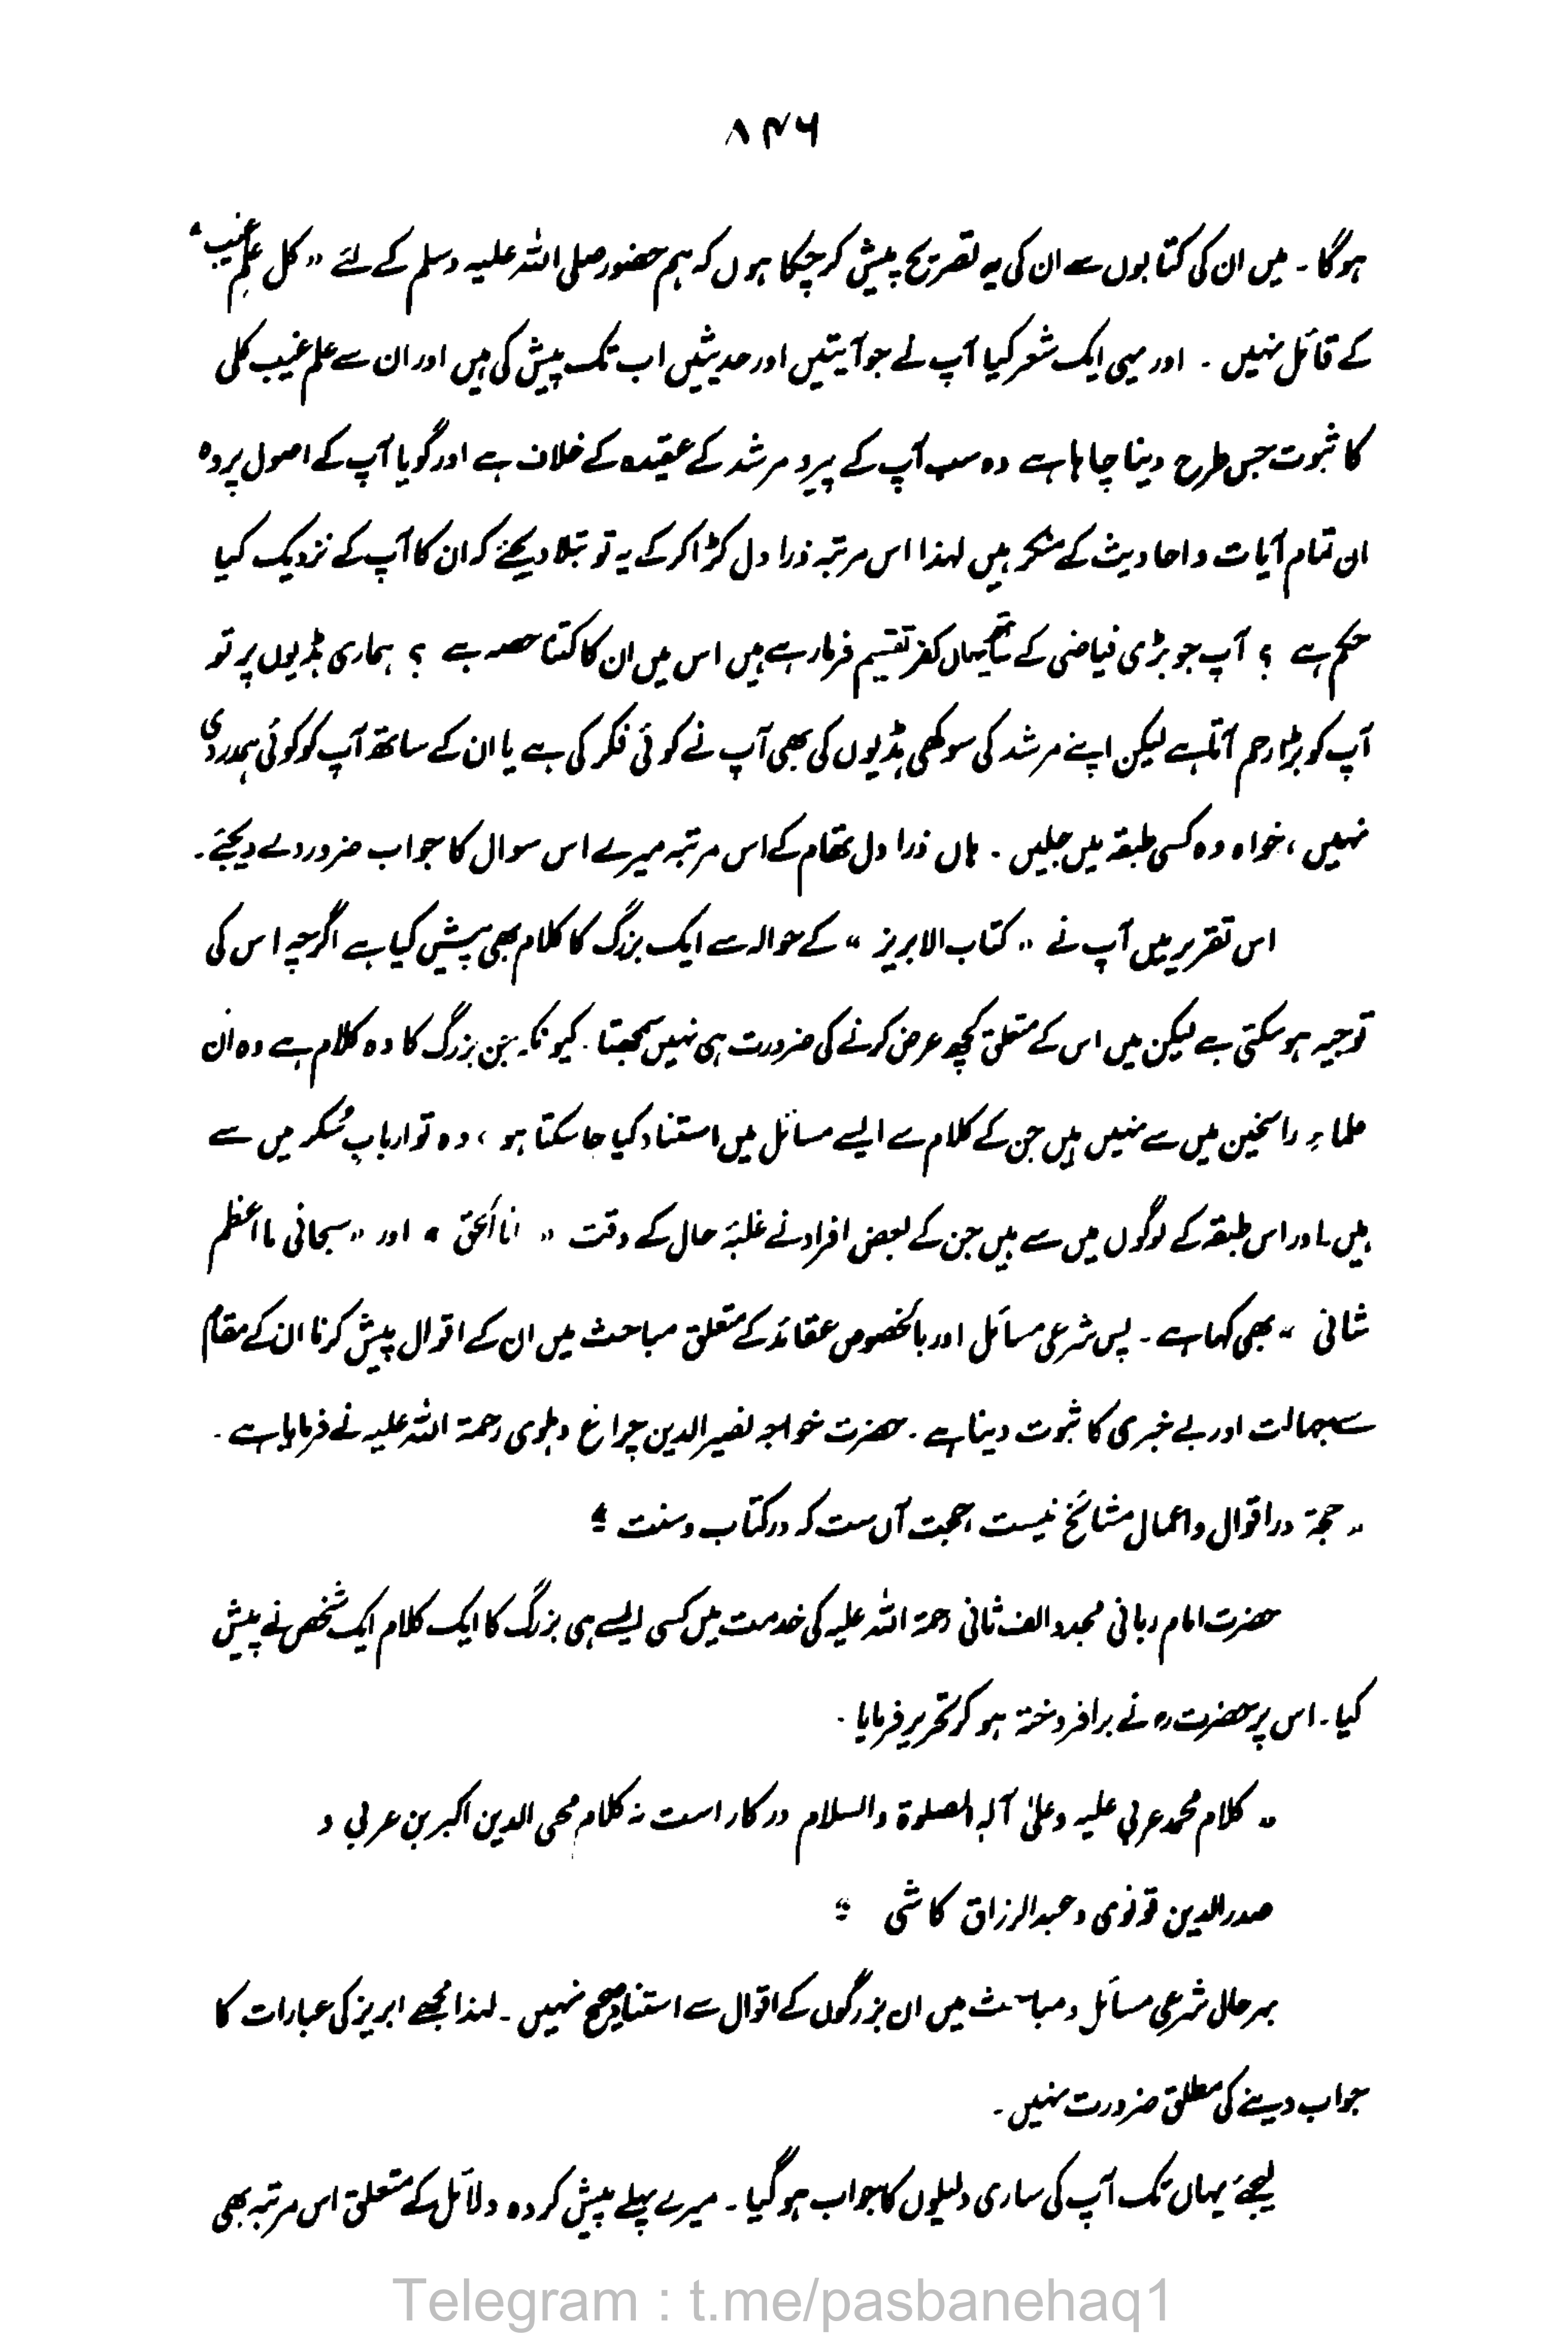 ۸۴۶
ہوگا ۔ میں ان کی کتابوں سے ان کی یہ تصریح پیش کرچکا ہوں کہ ہم حضور صلی اللہ علیہ وسلم کے لئے " کل علم غیب "
کے قائل نہیں ۔ اور میں ایک شعر کیا آپ نے جو آیتیں اور حدیثیں اب تک پیش کی ہیں اور ان سے علم غیب کلی
کا ثبوت جس طرح دینا چاہا ہے وہ سب آپ کے پیر و مرشد کے عقیدہ کے خلاف ہے اور گویا آپ کے اصول پر وہ
ان تمام آیات و احادیث کے منکر ہیں لہٰذا اس مرتبہ ذرا دل کڑا کرکے یہ تو بتلا دیجئے کہ ان کا آپ کے نزدیک کیا
حکم ہے ؟ آپ جو بڑی فیاضی کے ساتھ یہاں کفر تقسیم فرمارہے ہیں اس میں ان کا کتنا حصہ ہے ؟ ہماری ہڈیوں پر تو
آپ کو بڑا رحم آتا ہے لیکن اپنے مرشد کی سوکھی ہڈیوں کی بھی آپ نے کوئی فکر کی ہے یا ان کے ساتھ آپ کو کوئی ہمدردی
نہیں ، خواہ وہ کسی طبقہ میں جلیں ۔ ہاں ذرا دل تھام کے اس مرتبہ میرے اس سوال کا جواب ضرور دے دیجئے ۔
اس تقریر میں آپ نے " کتاب الابریز " کے حوالہ سے ایک بزرگ کا کلام بھی پیش کیا ہے اگرچہ اس کی
توجیہ ہوسکتی ہے لیکن میں اس کے متعلق کچھ عرض کرنے کی ضرورت ہی نہیں سمجھتا ۔ کیونکہ جن بزرگ کا وہ کلام ہے وہ ان
علماءِ راسخین میں سے نہیں ہیں جن کے کلام سے ایسے مسائل میں استناد کیا جاسکتا ہو ، وہ تو اربابِ سُکر میں سے
ہیں ۔ اور اس طبقہ کے لوگوں میں سے ہیں جن کے بعض افراد نے غلبۂ حال کے وقت " انا الحق " اور " سبحانی ما اعظم
شانی " بھی کہا ہے ۔ پس شرعی مسائل اور بالخصوص عقائد کے متعلق مباحث میں ان کے اقوال پیش کرنا ان کے مقام
سے جہالت اور بے خبری کا ثبوت دینا ہے ۔ حضرت خواجہ نصیر الدین چراغ دہلوی رحمۃ اللہ علیہ نے فرمایا ہے ۔
" حجۃ در اقوال و اعمال مشائخ نیست ، حجت آں ست کہ در کتاب و سنت "
حضرت امام ربانی مجدد الف ثانی رحمۃ اللہ علیہ کی خدمت میں کسی ایسے ہی بزرگ کا ایک کلام ایک شخص نے پیش
کیا ۔ اس پر حضرت رہ نے برافروختہ ہو کر تحریر فرمایا ۔
" کلام محمد عربی علیہ وعلیٰ آلہ الصلوۃ والسلام درکار است نہ کلام محی الدین اکبر بن عربی و
صدر الدین قونوی و عبد الرزاق کاشی "
بہرحال شرعی مسائل و مباحث میں ان بزرگوں کے اقوال سے استناد صحیح نہیں ۔ لہٰذا مجھے ابریز کی عبارات کا
جواب دینے کی مطلق ضرورت نہیں ۔
لیجئے یہاں تک آپ کی ساری دلیلوں کا جواب ہوگیا ۔ میرے پہلے پیش کردہ دلائل کے متعلق اس مرتبہ بھی
Telegram : t.me/pasbanehaq1